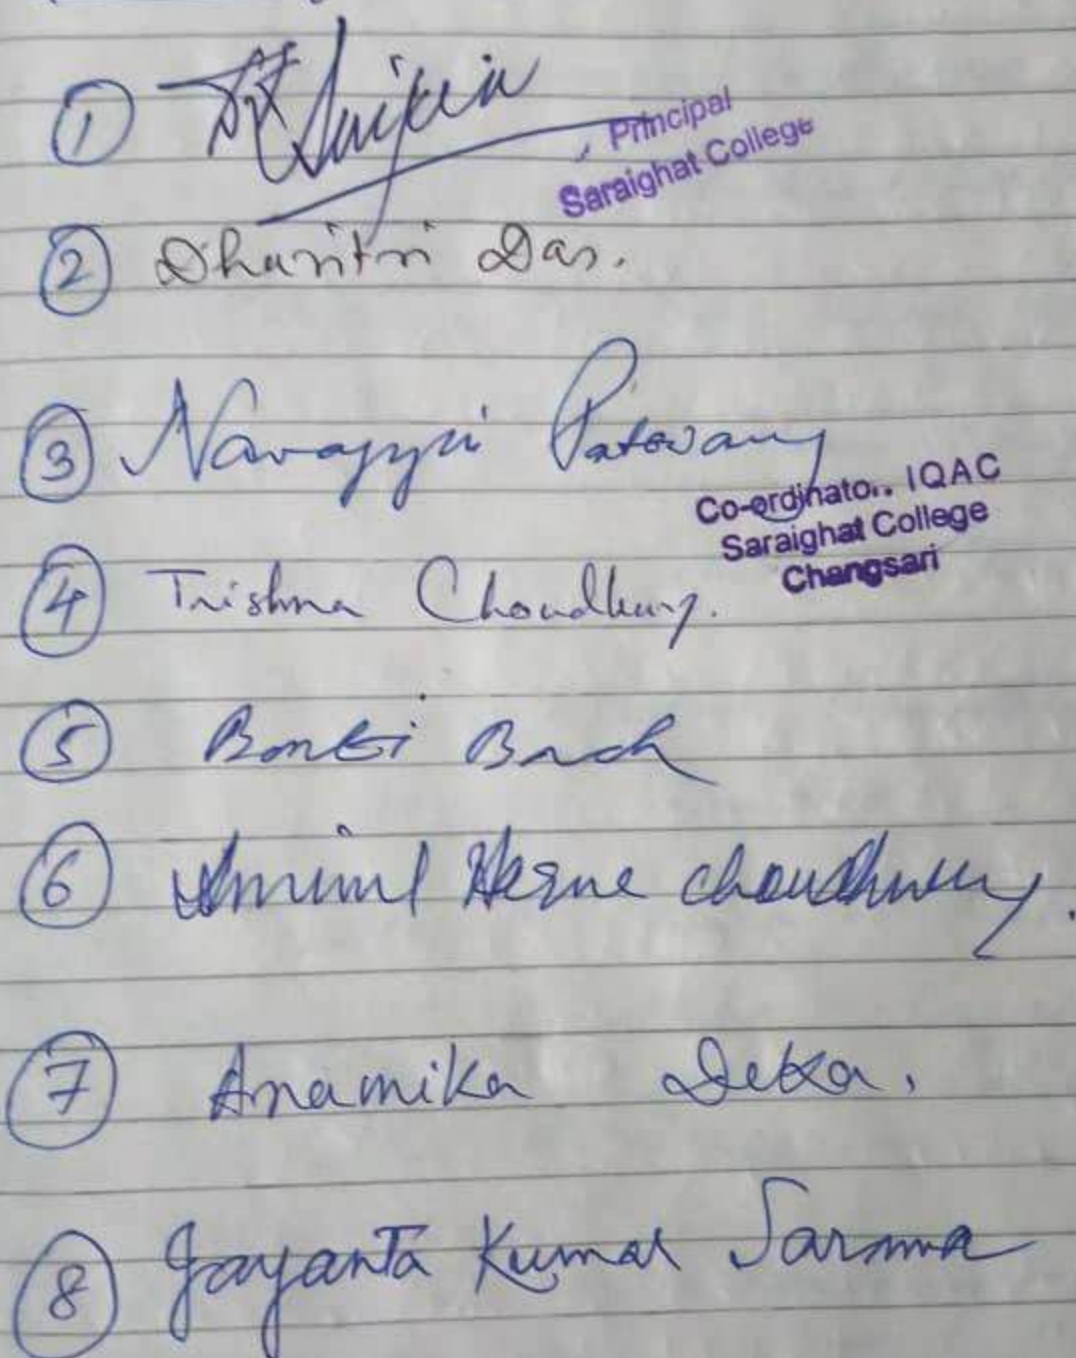 ① Saikia
Principal
Saraighat College
② Dharitri Das.
③ Navagyri Patowary
Co-ordinator. IQAC
Saraighat College
Changsari
④ Trishna Choudhury.
⑤ Bonti
⑥ Choudhury.
⑦ Anamika Deka.
⑧ Jayanta Kumar Sarma